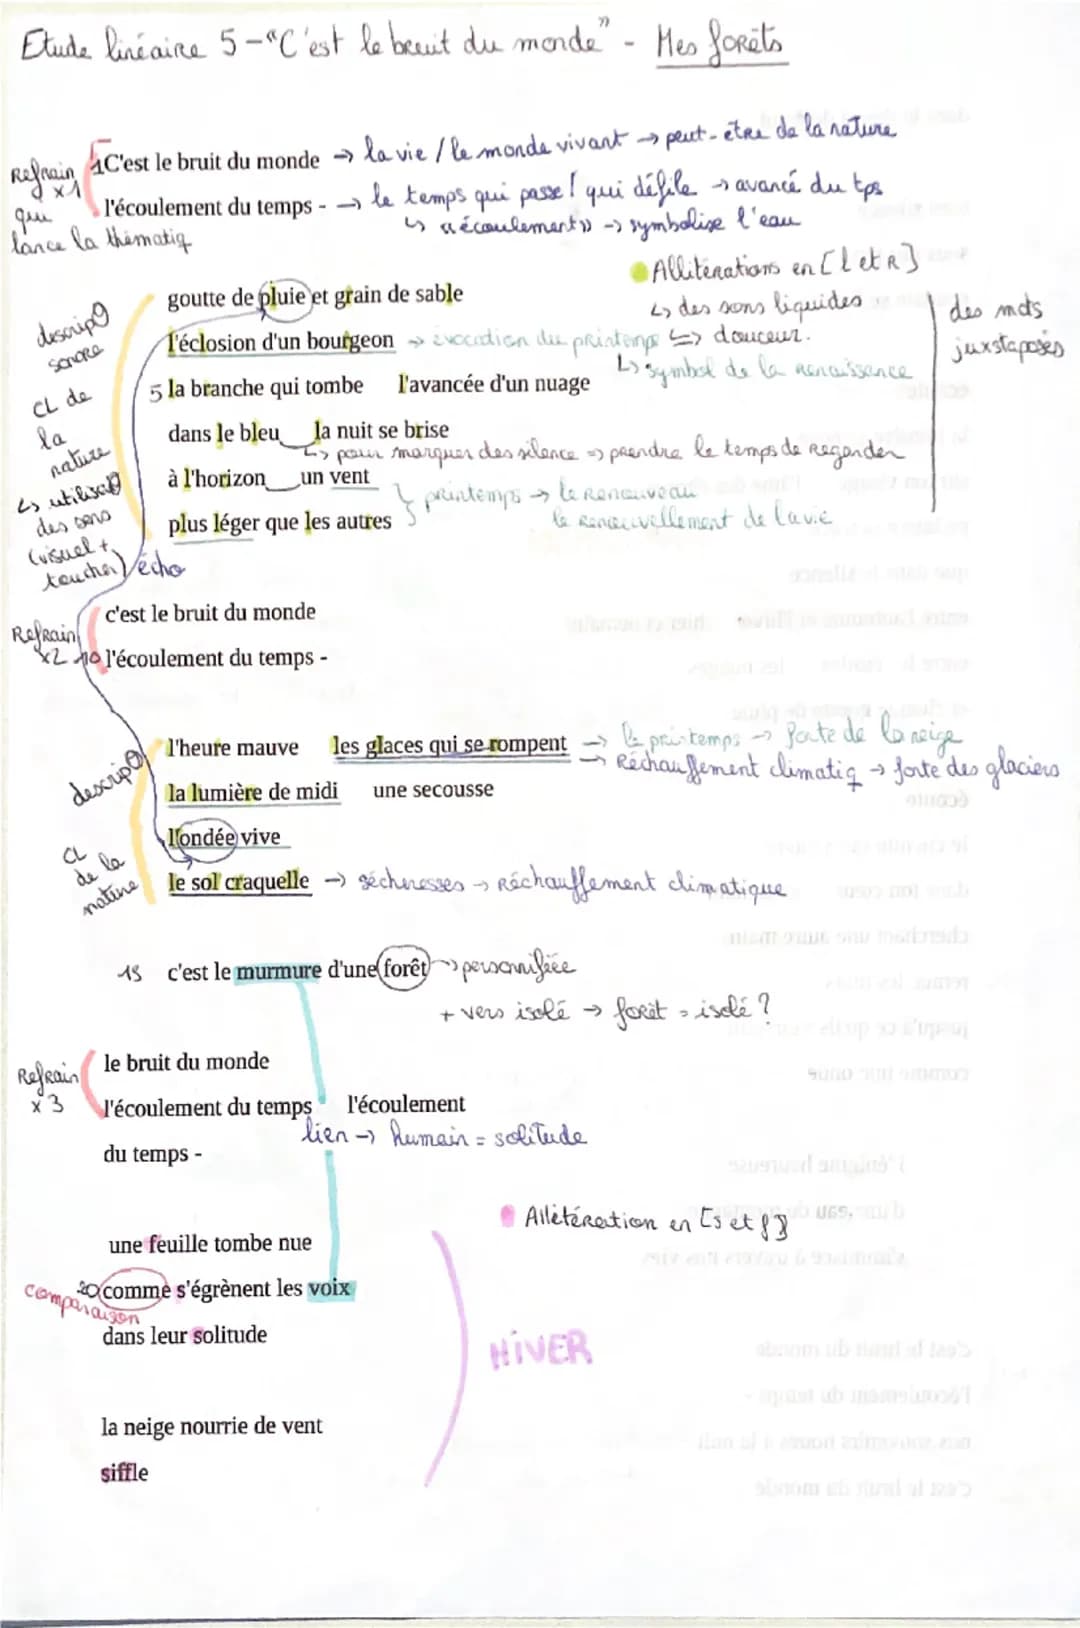 Etude linéaire 5 - "C'est le bruit du monde" - Mes forêts
Refrain x1 qui lance la thématiq
1 C'est le bruit du monde → la vie / le monde vivant → peut-être de la nature
l'écoulement du temps - → le temps qui passe / qui défile → avancé du tps
↳ «écoulement» → symbolise l'eau
Allitérations en [l et R]
↳ des sons liquides
↳ douceur.
des mots juxstaposés
descrip° sonore
CL de la nature
↳ utilisa° des sens (visuel + toucher)
goutte de pluie et grain de sable
l'éclosion d'un bourgeon → évocation du printemps
↳ symbol de la renaissance
5 la branche qui tombe l'avancée d'un nuage
dans le bleu la nuit se brise
↳ pour marquer des silence => prendre le temps de regarder
à l'horizon un vent
plus léger que les autres
printemps → le Renouveau
le renouvellement de la vie
écho
Refrain x2
c'est le bruit du monde
10 l'écoulement du temps -
descrip°
CL de la nature
l'heure mauve les glaces qui se rompent → le printemps → fonte de la neige
→ Réchauffement climatiq → fonte des glaciers
la lumière de midi une secousse
l'ondée vive
le sol craquelle → sécheresses → Réchauffement climatique
15 c'est le murmure d'une forêt → personnifiée
+ vers isolé → forêt = isolé ?
Refrain x3
le bruit du monde
l'écoulement du temps l'écoulement
lien → humain = solitude
du temps -
Allétération en [s et f]
une feuille tombe nue
20 comme s'égrènent les voix
comparaison
dans leur solitude
HIVER
la neige nourrie de vent
siffle